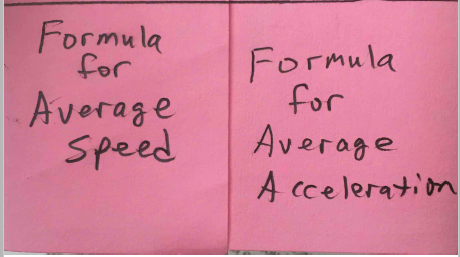 Formula
for
Average
Speed
Formula
for
Average
Acceleration